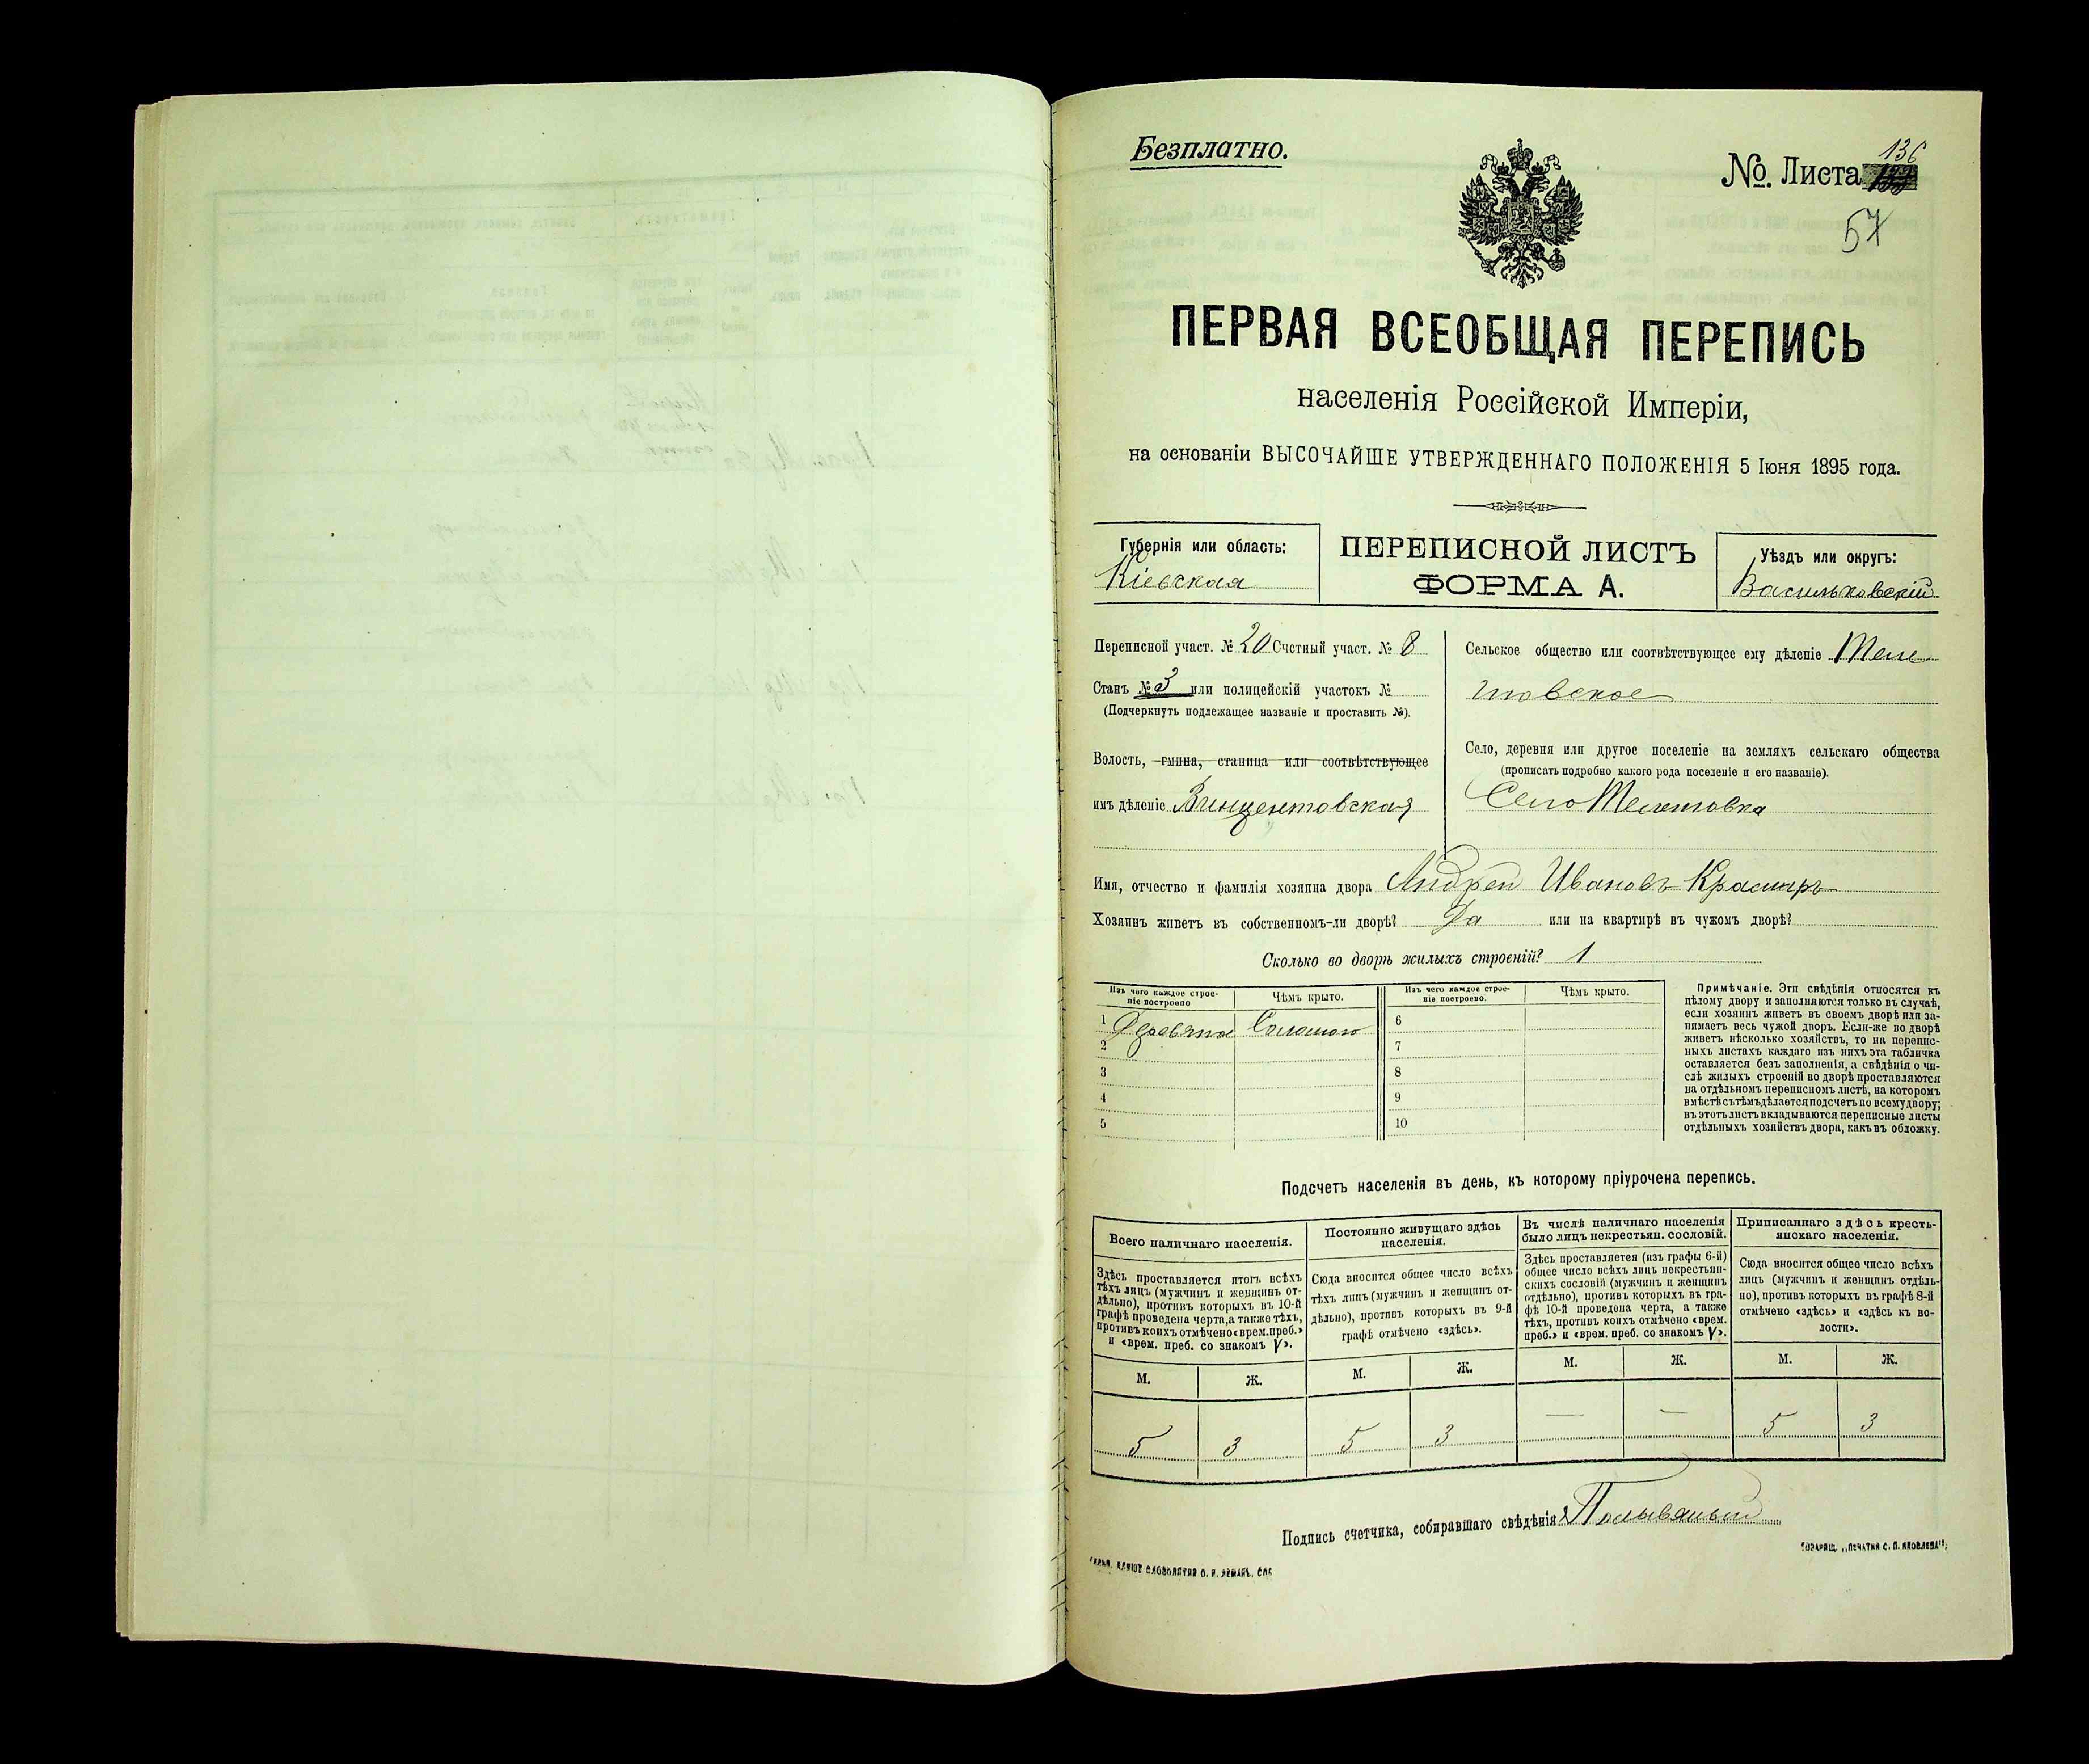 Безплатно.
№ Листа 136
57
ПЕРВАЯ ВСЕОБЩАЯ ПЕРЕПИСЬ
населенія Россійской Имперіи,
на основаніи ВЫСОЧАЙШЕ УТВЕРЖДЕННАГО ПОЛОЖЕНІЯ 5 Іюня 1895 года.
Губернія или область:
Кіевская
ПЕРЕПИСНОЙ ЛИСТЪ
ФОРМА А.
Уѣздъ или округъ:
Васильковскій
Переписной участ. № 20 Счетный участ. № 8
Станъ № 3 или полицейскій участокъ №
(Подчеркнуть подлежащее названіе и проставить №).
Волость, гмина, станица или соотвѣтствующее
имъ дѣленіе Винцентовская
Сельское общество или соотвѣтствующее ему дѣленіе Теле
товское
Село, деревня или другое поселеніе на земляхъ сельскаго общества
(прописать подробно какого рода поселеніе и его названіе).
Село
Имя, отчество и фамилія хозяина двора Андрей Ивановъ
Хозяинъ живетъ въ собственномъ-ли дворѣ? Да или на квартирѣ въ чужомъ дворѣ?
Сколько во дворѣ жилыхъ строеній? 1
Изъ чего каждое строе-
ніе построено
Чѣмъ крыто.
1 Деревяное Соломою
2
3
4
5
Изъ чего каждое строе-
ніе построено.
Чѣмъ крыто.
6
7
8
9
10
Примѣчаніе. Эти свѣдѣнія относятся къ
цѣлому двору и заполняются только въ случаѣ,
если хозяинъ живетъ въ своемъ дворѣ или за-
нимаетъ весь чужой дворъ. Если-же во дворѣ
живетъ нѣсколько хозяйствъ, то на перепис-
ныхъ листахъ каждаго изъ нихъ эта табличка
оставляется безъ заполненія, а свѣдѣнія о чи-
слѣ жилыхъ строеній во дворѣ проставляются
на отдѣльномъ переписномъ листѣ, на которомъ
вмѣстѣ съ тѣмъ дѣлается подсчетъ по всему двору;
въ этотъ листъ вкладываются переписные листы
отдѣльныхъ хозяйствъ двора, какъ въ обложку.
Подсчетъ населенія въ день, къ которому пріурочена перепись.
Всего наличнаго населенія.
Здѣсь проставляется итогъ всѣхъ
тѣхъ лицъ (мужчинъ и женщинъ от-
дѣльно), противъ которыхъ въ 10-й
графѣ проведена черта, а также тѣхъ,
противъ коихъ отмѣчено «врем. преб.»
и «врем. преб. со знакомъ V».
М. Ж.
5 3
Постоянно живущаго здѣсь
населенія.
Сюда вносится общее число всѣхъ
тѣхъ лицъ (мужчинъ и женщинъ от-
дѣльно), противъ которыхъ въ 9-й
графѣ отмѣчено «здѣсь».
М. Ж.
5 3
Въ числѣ наличнаго населенія
было лицъ некрестьян. сословій.
Здѣсь проставляется (изъ графы 6-й)
общее число всѣхъ лицъ некрестьян-
скихъ сословій (мужчинъ и женщинъ
отдѣльно), противъ коихъ въ гра-
фѣ 10-й проведена черта, а также
тѣхъ, противъ коихъ отмѣчено «врем.
преб.» и «врем. преб. со знакомъ V».
М. Ж.
— —
Приписаннаго здѣсь кресть-
янскаго населенія.
Сюда вносится общее число всѣхъ
лицъ (мужчинъ и женщинъ отдѣль-
но), противъ которыхъ въ графѣ 8-й
отмѣчено «здѣсь» и «здѣсь въ во-
лости».
М. Ж.
5 3
Подпись счетчика, собиравшаго свѣдѣнія
ТОВАРИЩ. „ПЕЧАТНЯ С. П. ЯКОВЛЕВА“.